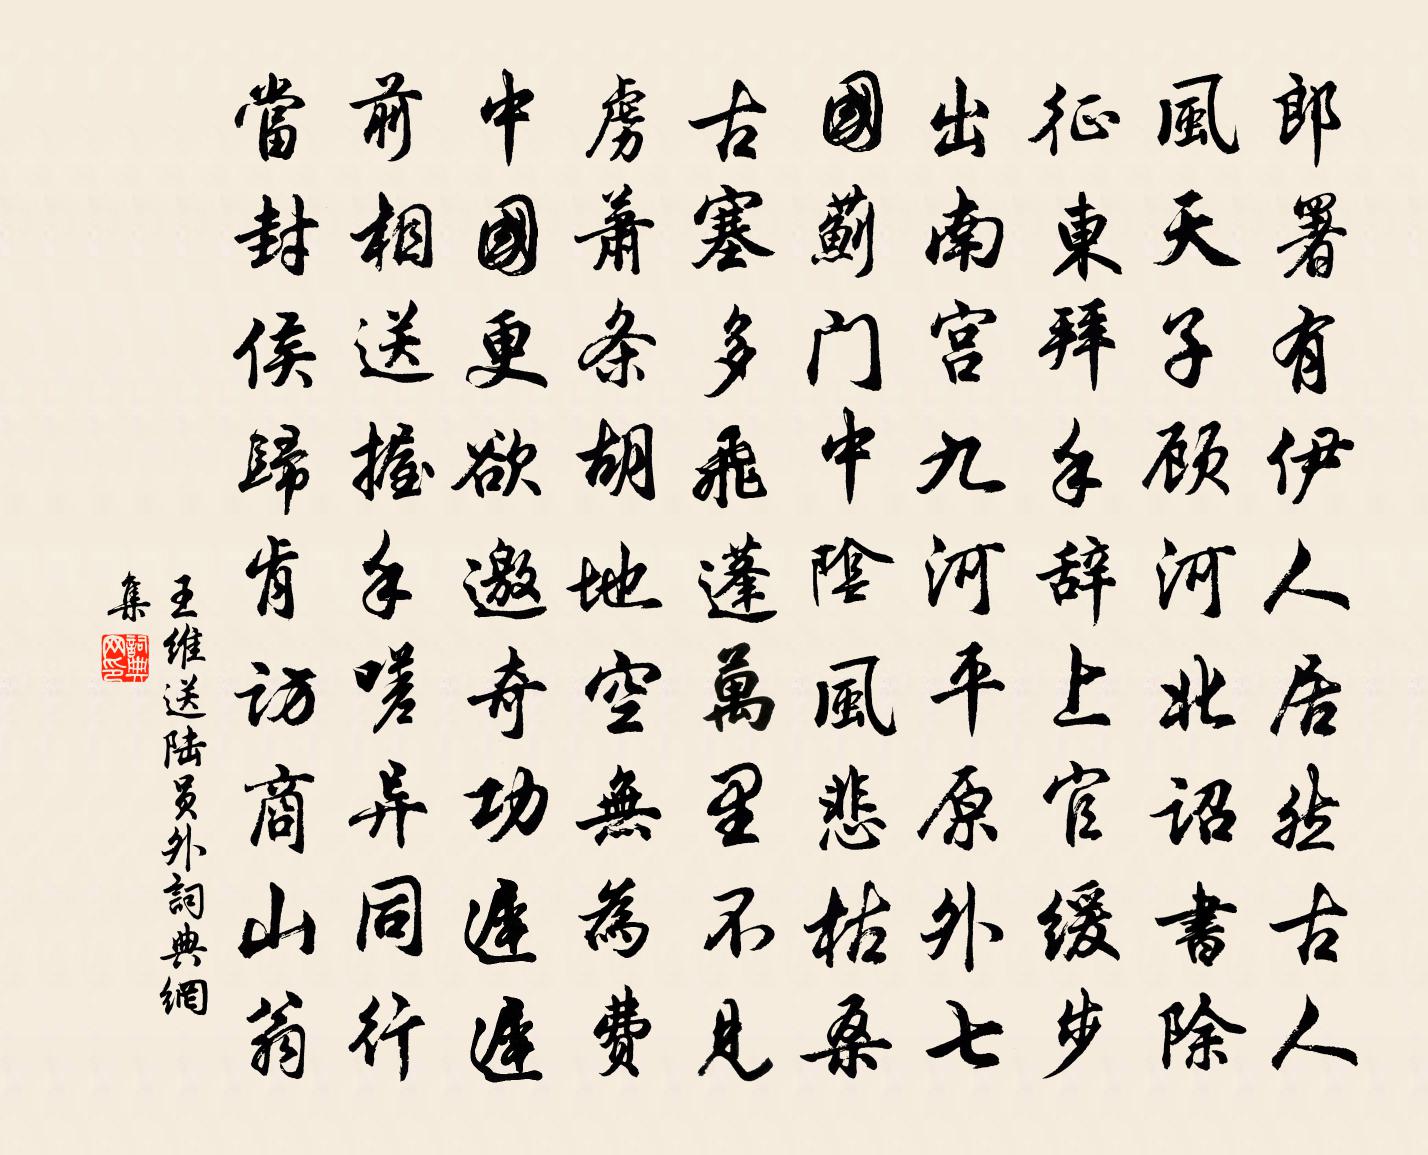 郎署有伊人居然古人
風天子顾河北詔書除
征東拜手辞上官缓步
出南宫九河平原外七
國薊门中陰風悲枯桑
古塞多飛蓬萬里不見
虜蕭条胡地空無為費
中國更欲邀奇功遲遲
前相送握手嗟异同行
當封侯歸肯访商山翁
王维送陆员外詞典網
集
詞典网印